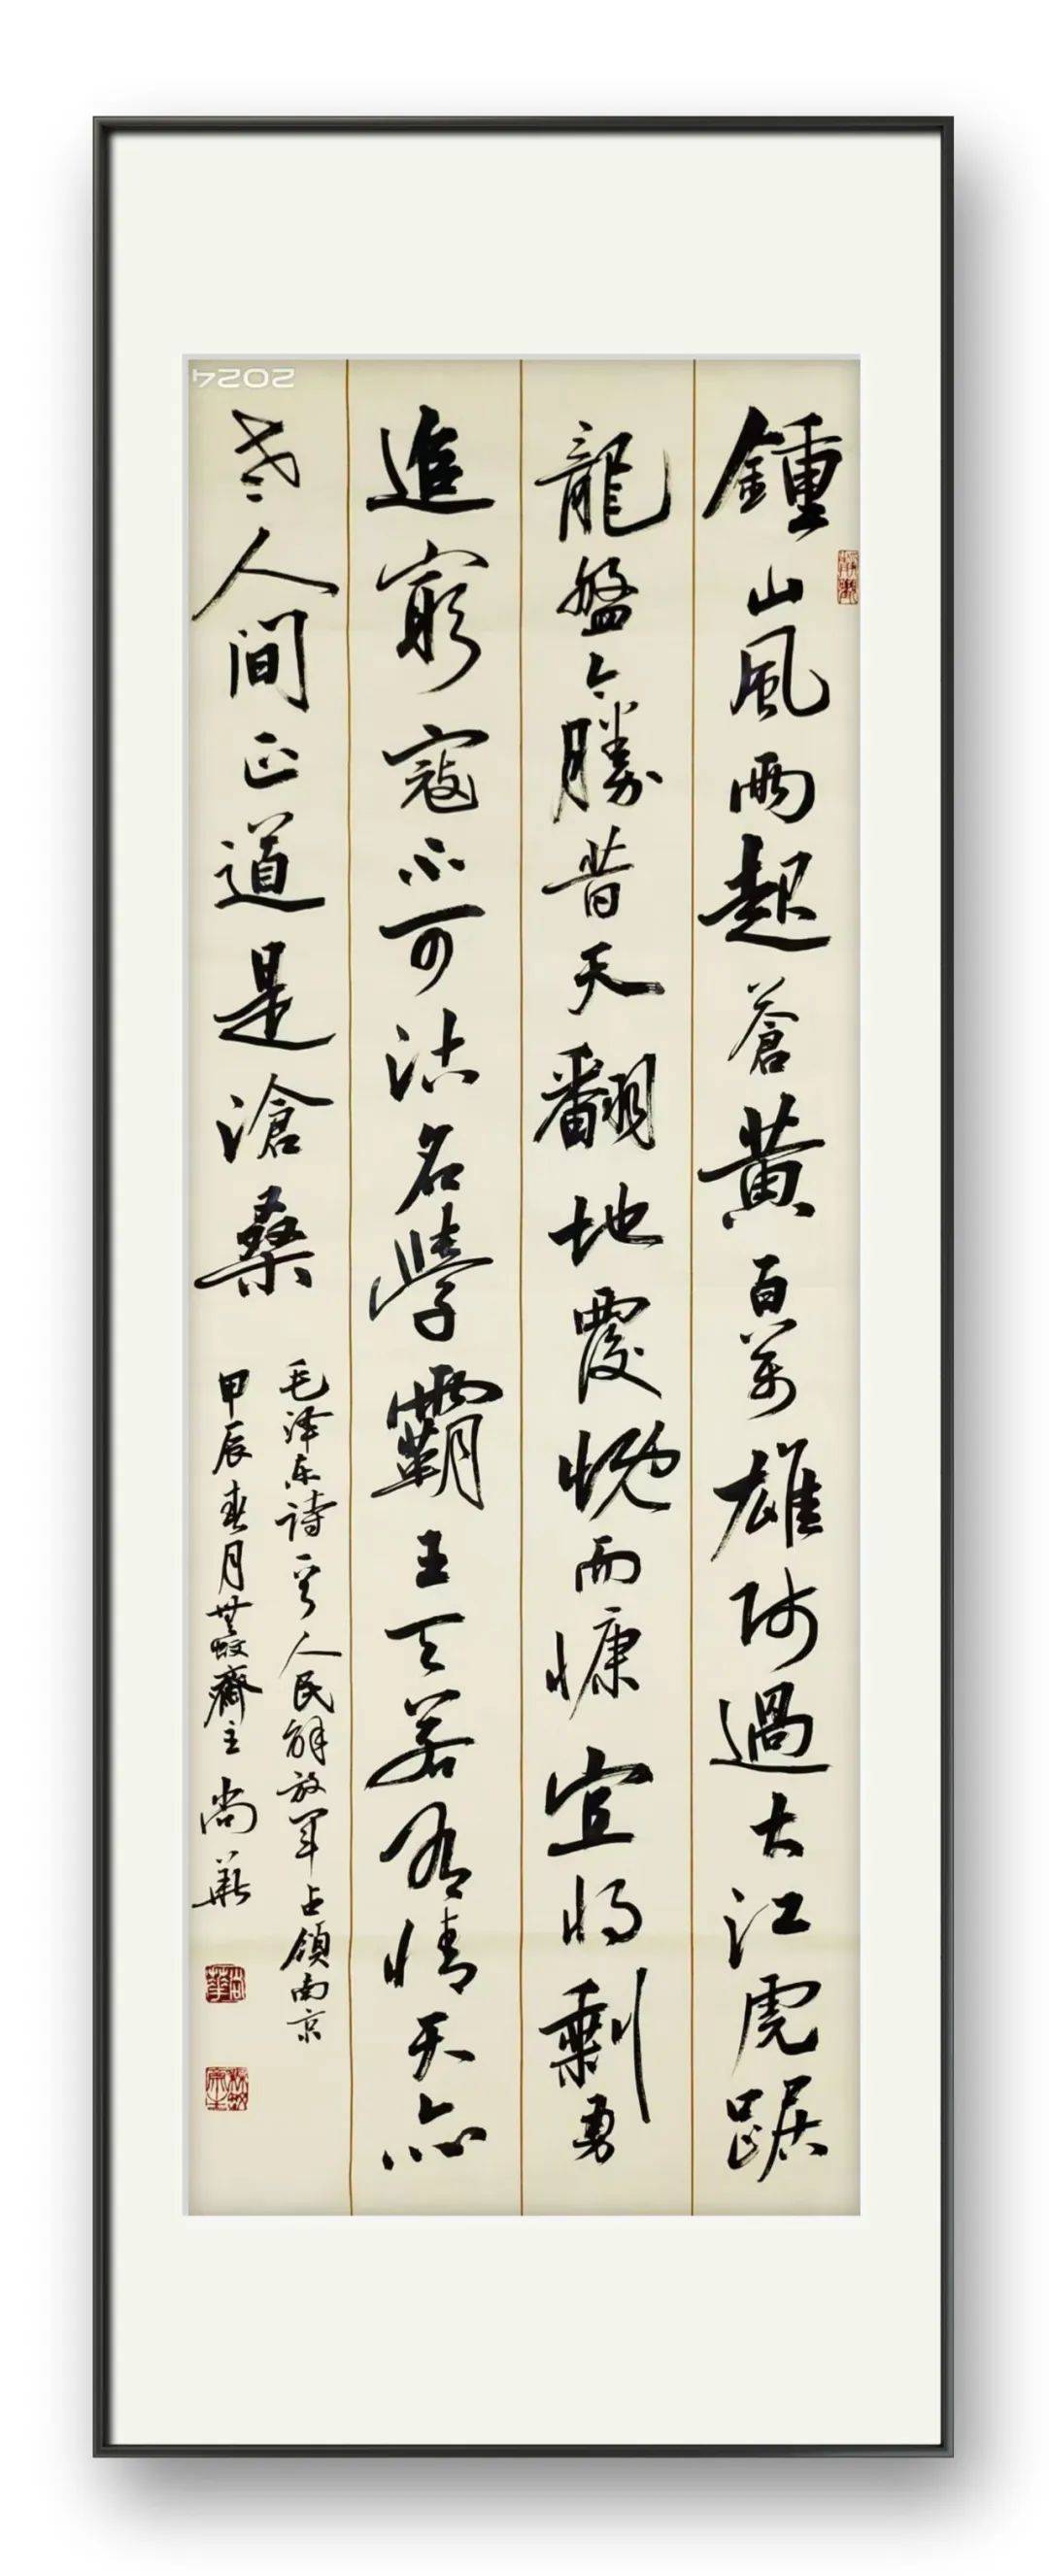 鍾山風雨起蒼黄百萬雄師過大江虎踞
龍盤今勝昔天翻地覆慨而慷宜將剩勇
追窮寇不可沽名學霸王天若有情天亦
老人间正道是滄桑
毛泽东诗一首人民解放军占领南京
甲辰春月齋主尚華
2024